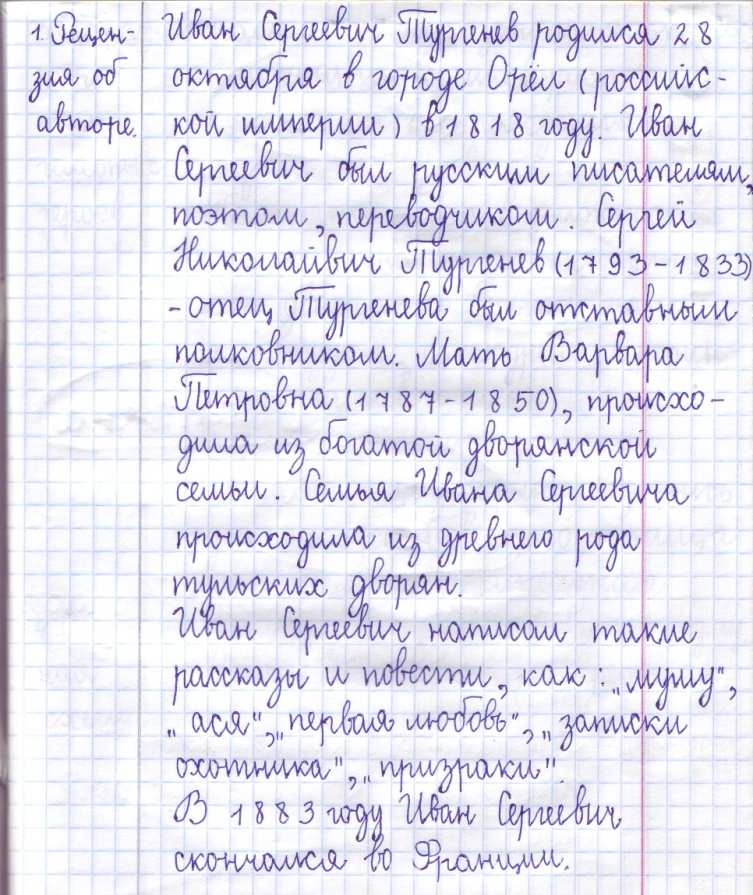 1. Рецен-
зия об
авторе.
Иван Сергеевич Тургенев родился 28
октября в городе Орёл (российс-
кой империи) в 1818 году. Иван
Сергеевич был русским писателям,
поэтом, переводчиком. Сергей
Николайвич Тургенев (1793-1833)
- отец Тургенева был отставным
полковником. Мать Варвара
Петровна (1787-1850), происхо-
дила из богатой дворянской
семьи. Семья Ивана Сергеевича
происходила из древнего рода
тульских дворян.
Иван Сергеевич написал такие
рассказы и повести, как: „муму",
„ася", „первая любовь", „записки
охотника", „призраки".
В 1883 году Иван Сергеевич
скончался во Франции.